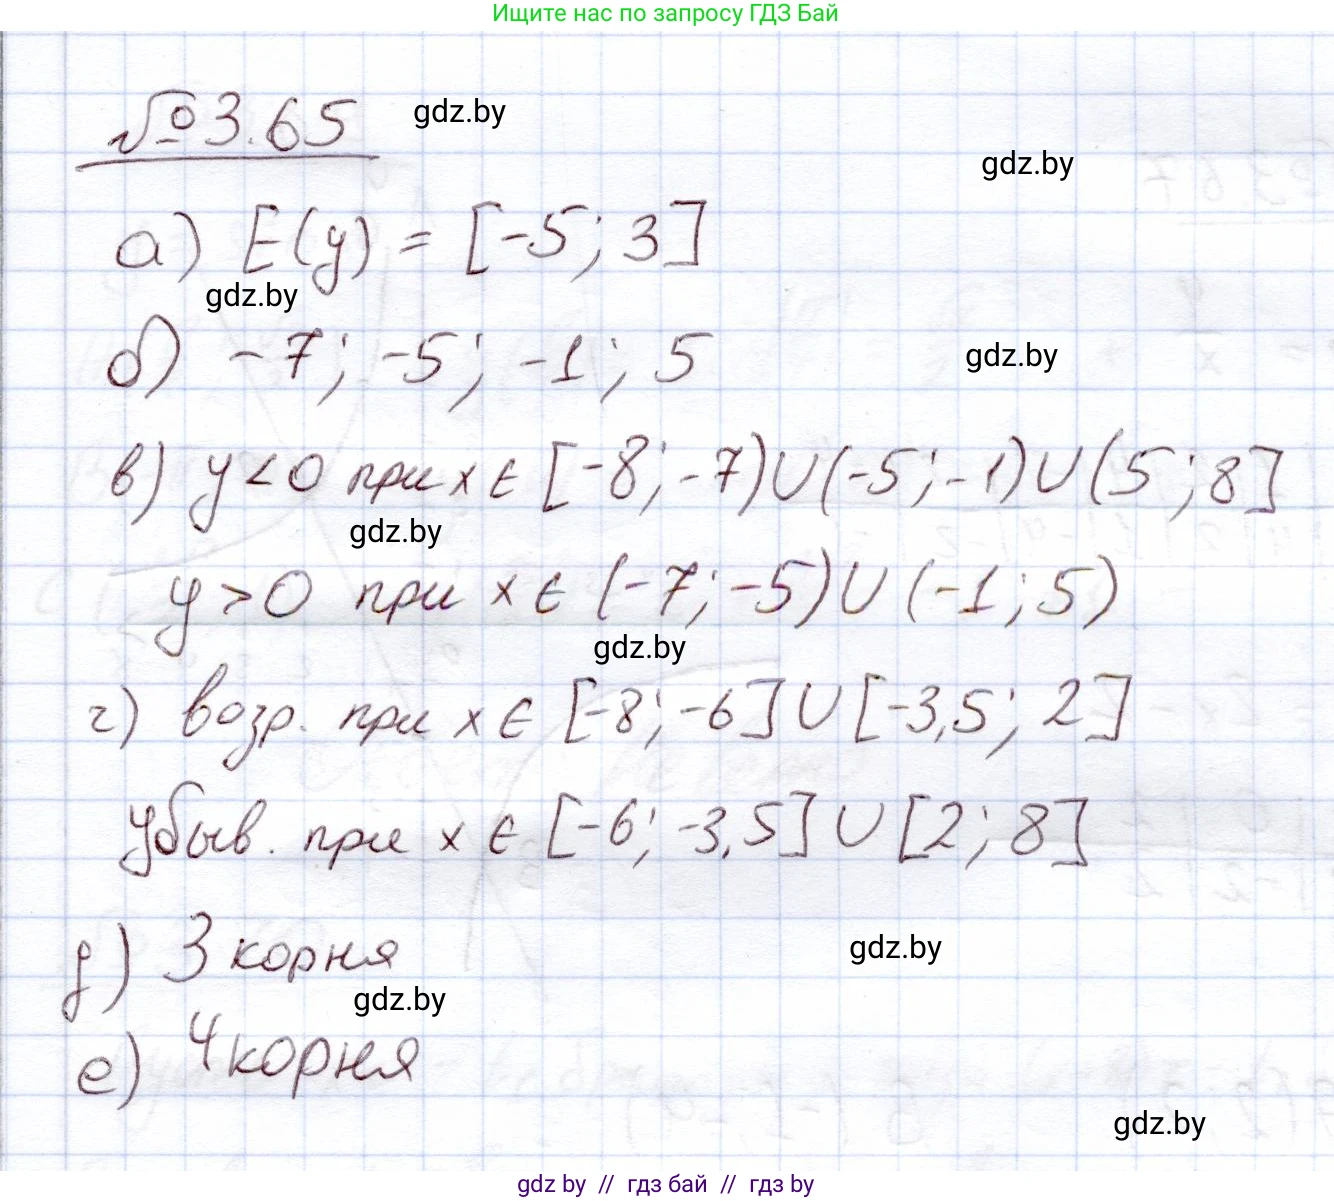 Ищите нас по запросу ГДЗ Бай
№3.65
gdz.by
gdz.by
а) E(y) = [-5; 3]
gdz.by
б) -7; -5; -1; 5
gdz.by
в) y < 0 при x ∈ [-8; -7) ∪ (-5; -1) ∪ (5; 8]
gdz.by
y > 0 при x ∈ (-7; -5) ∪ (-1; 5)
gdz.by
г) возр. при x ∈ [-8; -6] ∪ [-3,5; 2]
убыв. при x ∈ [-6; -3,5] ∪ [2; 8]
д) 3 корня
gdz.by
gdz.by
е) 4 корня
gdz.by
gdz by // гдз бай // гдз by